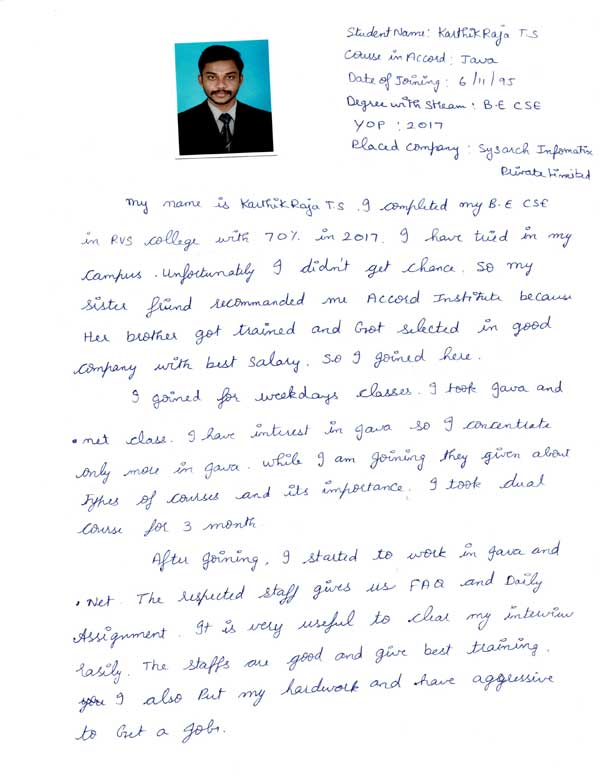 Student Name: Karthik Raja T.S
Course in Accord: Java
Date of Joining: 6/11/95
Degree with Stream: B.E CSE
YOP : 2017
Placed Company : Sysarch Infomatix
Private Limited
My name is Karthik Raja T.S. I completed my B.E CSE
in RVS college with 70% in 2017. I have tried in my
campus. Unfortunately I didn't get chance. So my
sister friend recommanded me Accord Institute because
Her brother got trained and Got selected in good
company with best salary. So I goined here.
I goined for weekdays classes. I took Java and
.net class. I have interest in Java so I concentrate
only more in Java. While I am goining they given about
Types of courses and its importance. I took dual
course for 3 month.
After goining, I started to work in Java and
.Net. The respected staff gives us FAQ and Daily
Assignment. It is very useful to clear my interview
easily. The staffs are good and give best training.
I also Put my hardwork and have aggressive
to Get a Jobs.